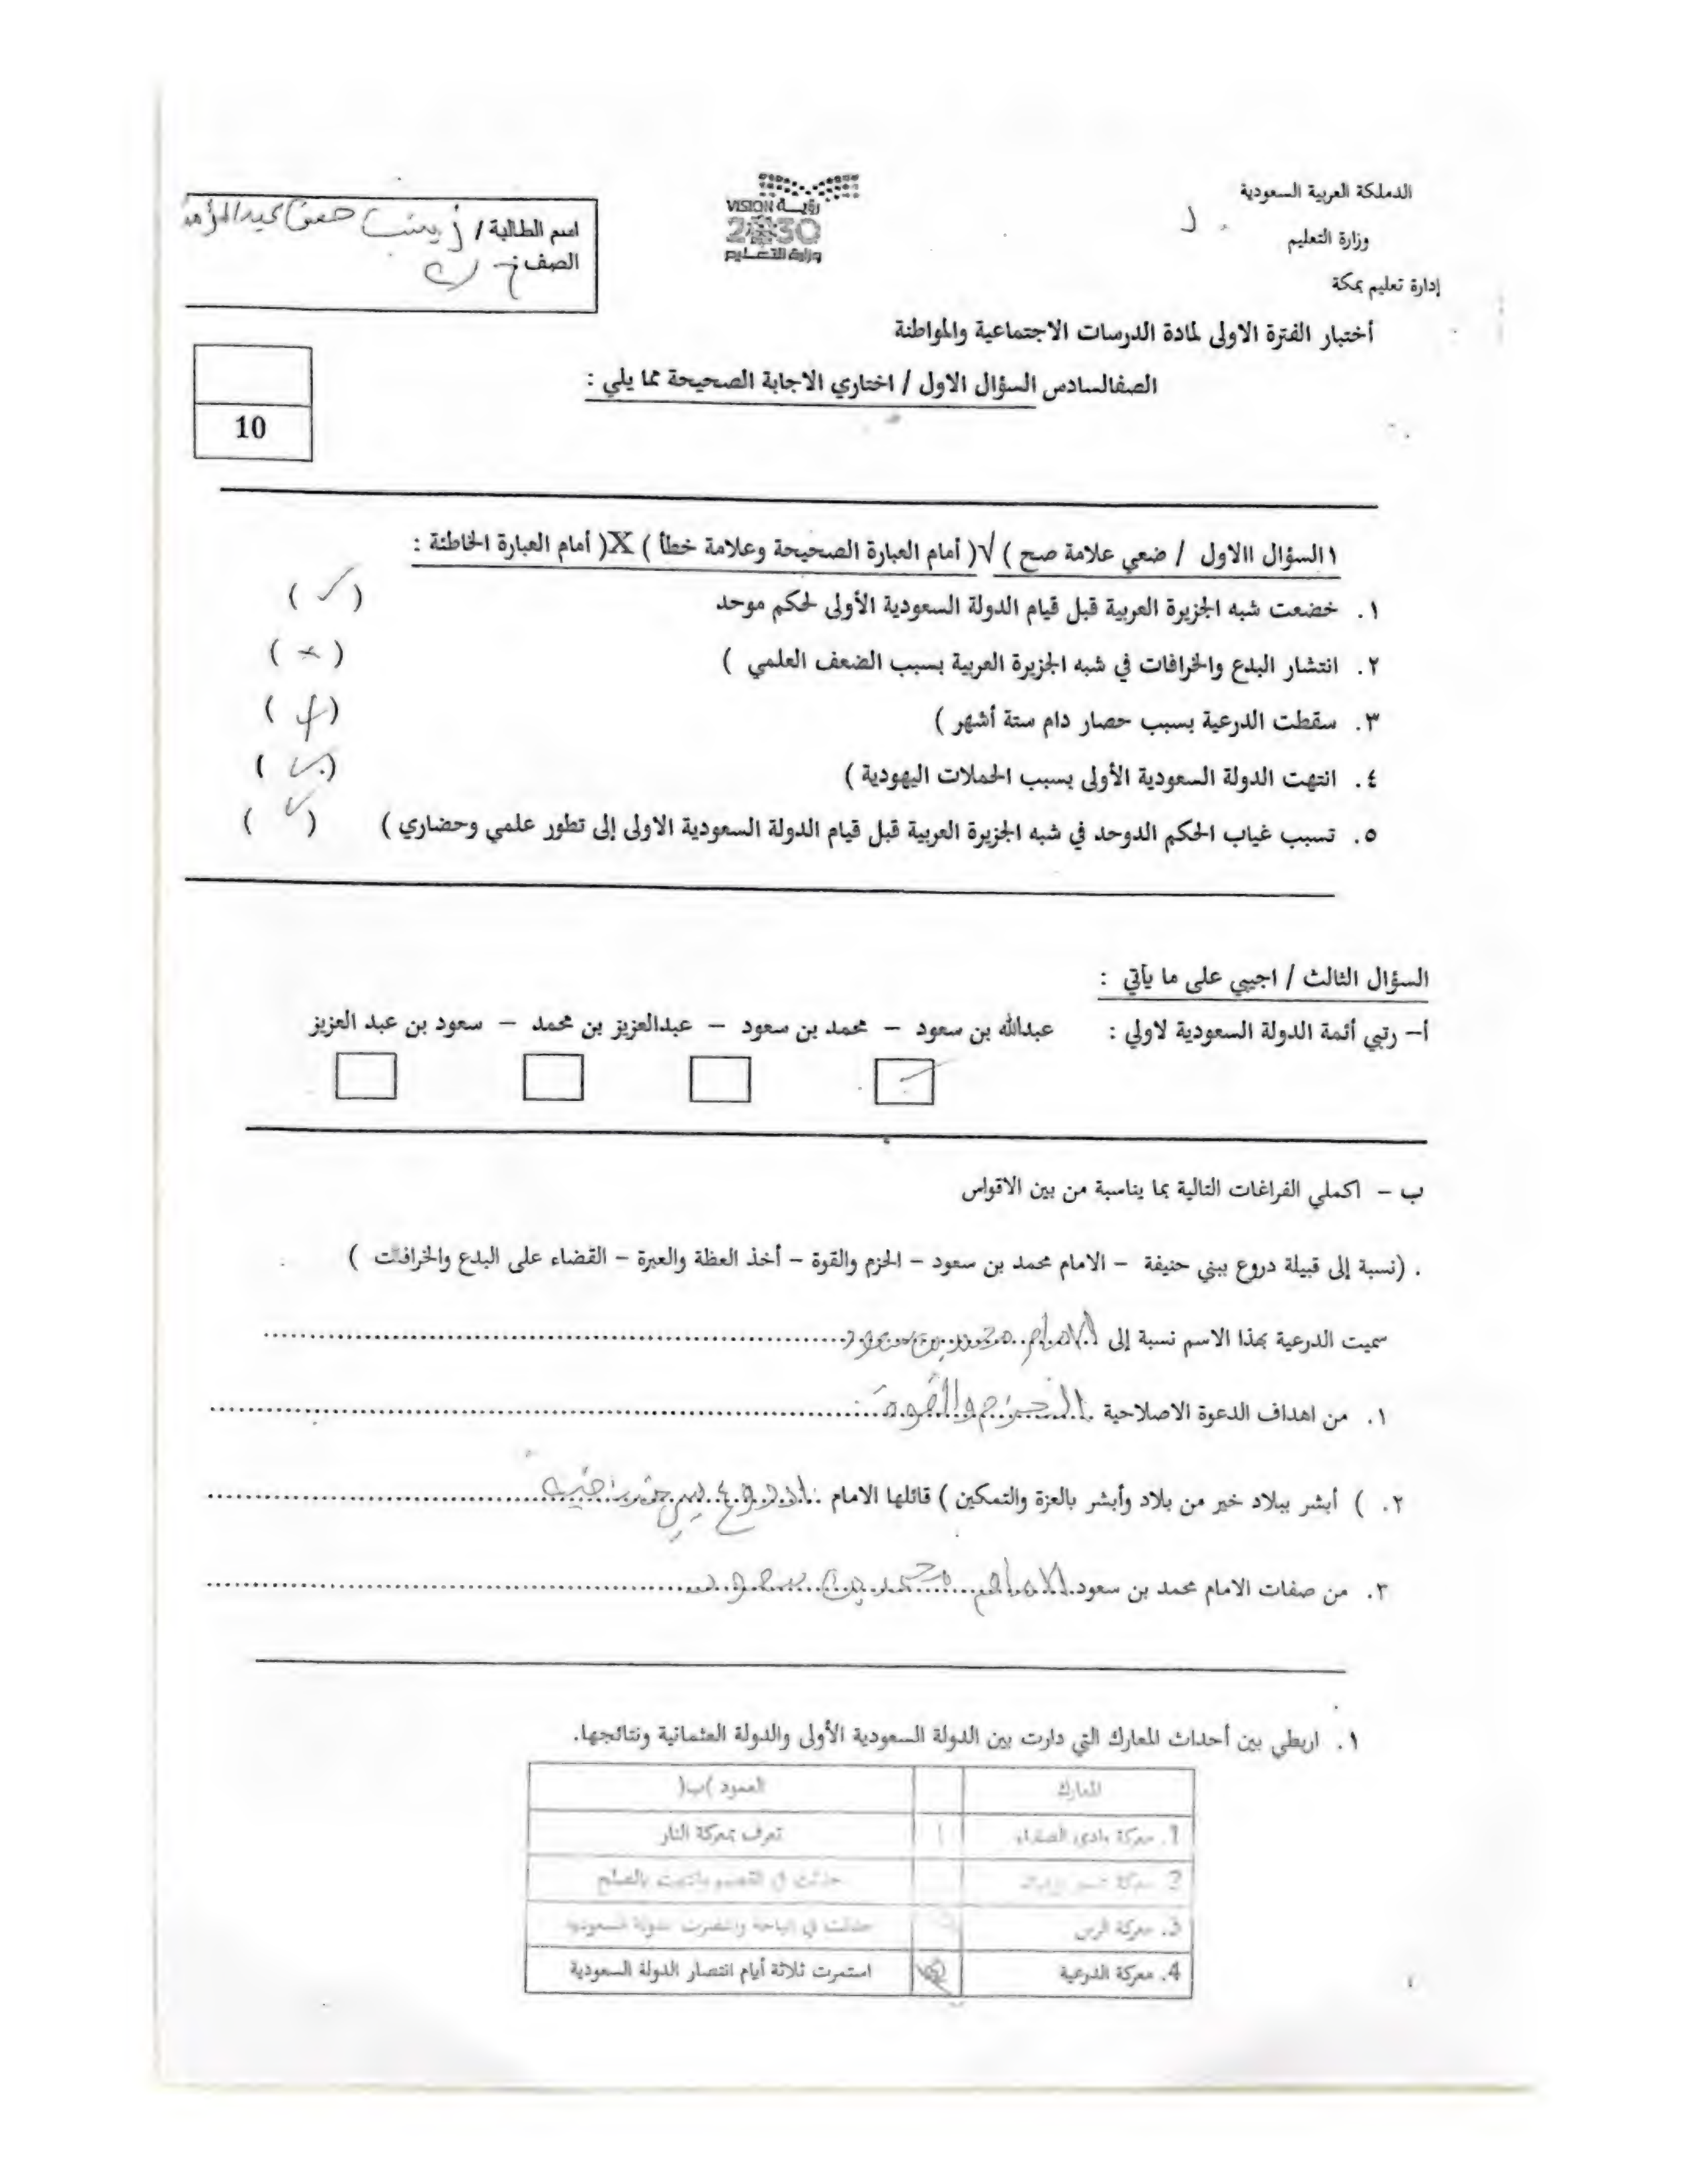 الدملكة العربية السعودية
وزارة التعليم
إدارة تعليم بمكة
VISION رؤيـــة
2030
وزارة التعـــليم
اسم الطالبة / زينب
الصف :
أختبار الفترة الاولى لمادة الدرسات الاجتماعية والمواطنة
الصفالسادس السؤال الاول / اختاري الاجابة الصحيحة مما يلي :
10
١السؤال االاول / ضعي علامة صح ) √( أمام العبارة الصحيحة وعلامة خطأ ) X( أمام العبارة الخاطئة :
١. خضعت شبه الجزيرة العربية قبل قيام الدولة السعودية الأولى لحكم موحد ( ✓ )
٢. انتشار البدع والخرافات في شبه الجزيرة العربية بسبب الضعف العلمي ) ( × )
٣. سقطت الدرعية بسبب حصار دام ستة أشهر ) ( × )
٤. انتهت الدولة السعودية الأولى بسبب الحملات اليهودية ) ( ✓ )
٥. تسبب غياب الحكم الدوحد في شبه الجزيرة العربية قبل قيام الدولة السعودية الاولى إلى تطور علمي وحضاري ) ( ✓ )
السؤال الثالث / اجيبي على ما يأتي :
أ– رتبي أئمة الدولة السعودية لاولي : عبدالله بن سعود – محمد بن سعود – عبدالعزيز بن محمد – سعود بن عبد العزيز
ب – اكملي الفراغات التالية بما يناسبة من بين الاقواس
. (نسبة إلى قبيلة دروع ببني حنيفة – الامام محمد بن سعود – الحزم والقوة – أخذ العظة والعبرة – القضاء على البدع والخرافات )
سميت الدرعية بهذا الاسم نسبة إلى الامام محمد بن سعود
١. من اهداف الدعوة الاصلاحية الحزم والقوة
٢. ) أبشر ببلاد خير من بلاد وأبشر بالعزة والتمكين ) قائلها الامام
٣. من صفات الامام محمد بن سعود الامام محمد بن سعود
١. اربطي بين أحداث المعارك التي دارت بين الدولة السعودية الأولى والدولة العثمانية ونتائجها.
المعارك العمود )ب(
1. معركة وادي الصفراء 1 تعرف بمعركة النار
2 معركة حدثت في القصيم وانتهت بالصلح
3. معركة الرس حدثت في الباحة وانتصرت الدولة السعودية
4. معركة الدرعية استمرت ثلاثة أيام انتصار الدولة السعودية